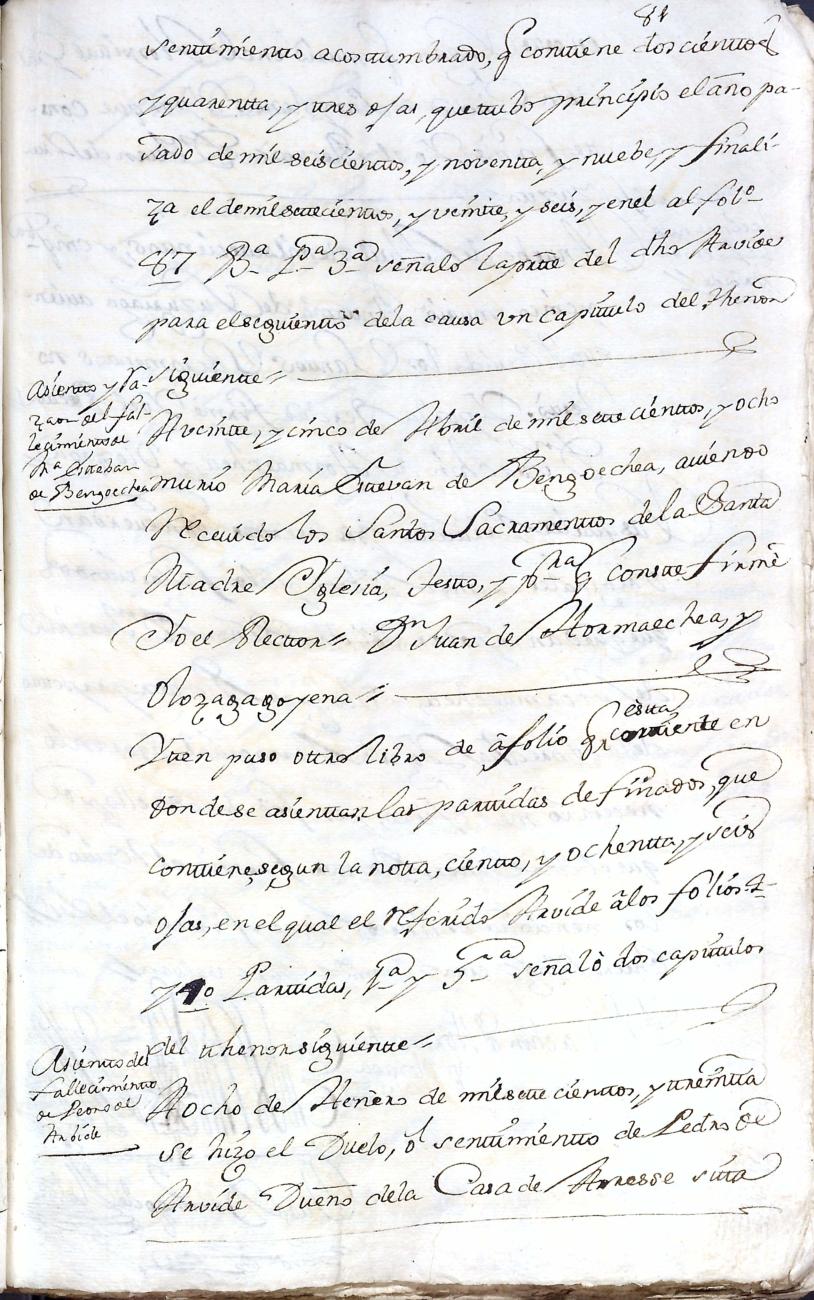 81
sentimiento acostumbrado, q̃ contiene doscientos
y quarentta, y tres ojas, que tubo principio el año pa-
sado de mil seiscientos, y noventa, y nuebe, y finali-
za el de mil settecientos, y veinte, y seis, y en el al folº
87 Bª Pª 3ª señalo la ptte del dho Arvide
para el seguientto de la causa vn capitulo del thenor
siguiente
Asiento y Ra-
zon del fal-
legimiento de
Mª Esteban
de Bengoechea
A veintte, y cinco de Abril de mil sette cientos, y ocho
murio Maria Estevan de Bengoechea, auiendo
Receuido los Santos Sacramentos de la Santa
Madre Yglesia, Testo, y pª q̃ conste firmè
Yo el Rector Dn Juan de Hormaechea, y
Olozagagoyena
Yten puso ottro libro de â folio q̃ esta corriente en
donde se asientan las partidas de finados, que
contiene, segun la notta, ciento, y ochentta, y seis
ojas, en el qual el referido Arvide â los folios 4
y 40 Partidas, 1ª y 5ª señalò dos capitulos
del thenor siguiente
Asiento del
fallecimiento
de Pedro de
Arbide
A ocho de Henero de mil sette cientos, y treintta
se hizo el Duelo, ò sentimiento de Pedro de
Arvide Dueño de la Casa de Arresse sitta